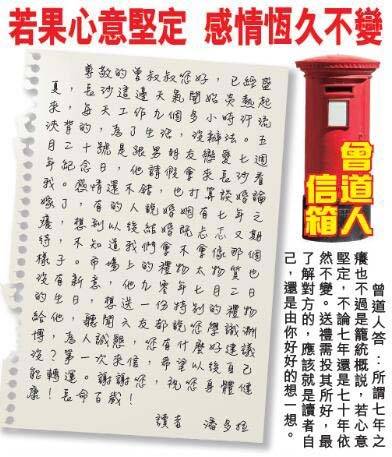 若果心意堅定 感情恆久不變
尊敬的曾叔叔您好，已經盛
夏，長沙這邊天氣開始炎熱起
來，每天工作九個多小時汗流
浹背的，為了生活，沒辦法。五
月二十號是跟男朋友戀愛七週
年紀念日，他請假會來長沙看
我。感情還不錯，也打算談婚論
嫁了，有的人說婚姻有七年之
癢，想到以後結婚既忐忑又期
待，不知道我們會不會像那個
樣子。市場上的禮物太物質也
沒有新意，他九零年七月二日
的生日，想送一份特別的禮物
給他，聽聞六友都說您學識淵
博，為人誠懇，您有什麼好建議
沒？第一次來信，希望以後自己
能轉運。謝謝您，祝您身體健
康！長命百歲！
讀者 潘多拉
曾道人
信箱
曾道人答：所謂七年之
癢也不過是籠統概說，若心意
堅定，不論七年還是七十年依
然不變。送禮需投其所好，最
了解對方的，應該就是讀者自
己，還是由你好好的想一想。